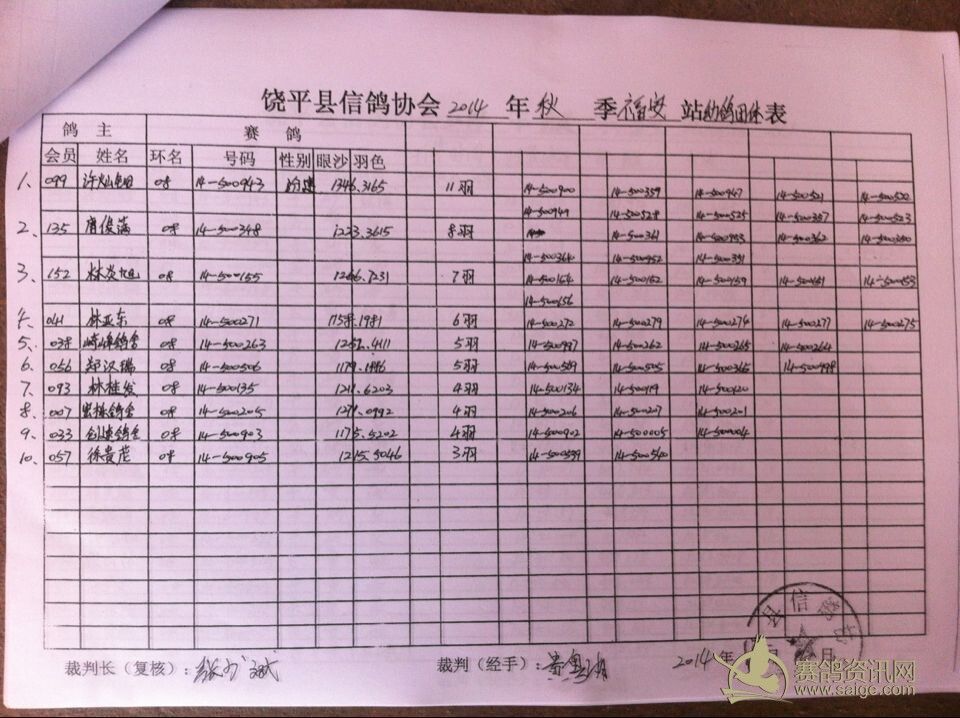 饶平县信鸽协会 2014 年 秋 季 福安 站幼鸽团体表
鸽 主 赛 鸽
会员 姓名 环名 号码 性别 眼沙 羽色
1、 099 08 14-500943 1346.3165 11羽 14-500900 14-500359 14-500947 14-500521 14-500520
14-500949 14-500528 14-500525 14-500357 14-500523
2、 135 唐俊藩 08 14-500348 1233.3615 8羽 14-500361 14-500953 14-500362 14-500350
14-500360 14-500952 14-500351
3、 152 林炎旭 08 14-500155 7羽 14-500154 14-500152 14-500159 14-500151 14-500153
14-500156
4、 041 林亚东 08 14-500271 1158.1981 6羽 14-500272 14-500279 14-500274 14-500277 14-500275
5、 038 08 14-500263 1257.4111 5羽 14-500997 14-500262 14-500265 14-500264
6、 056 郑汉瑞 08 14-500506 1179.1986 5羽 14-500509 14-500505 14-500365 14-500998
7、 093 林桂发 08 14-500135 1211.6203 4羽 14-500134 14-500119 14-500120
8、 007 08 14-500205 1271.0992 4羽 14-500206 14-500207 14-500201
9、 033 08 14-500903 1175.5202 4羽 14-500902 14-500005 14-500004
10、 057 徐贵茂 08 14-500905 1215.5046 3羽 14-500539 14-500540
县信鸽
裁判长（复核）： 裁判（经手）： 2014 年 月
赛鸽资讯网
www.saige.com